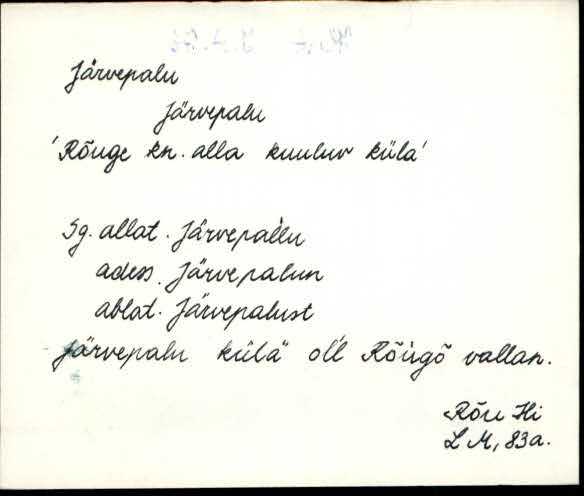 Järvepalu
Järvepalu
'Rõuge kn. alla kuuluv küla'
Sg. allat. Järvepallu
adess. Järvepalun
ablat. Järvepalust
Järvepalu külä oll' Rõugõ vallan.
Rõu Hi
L M, 83a.